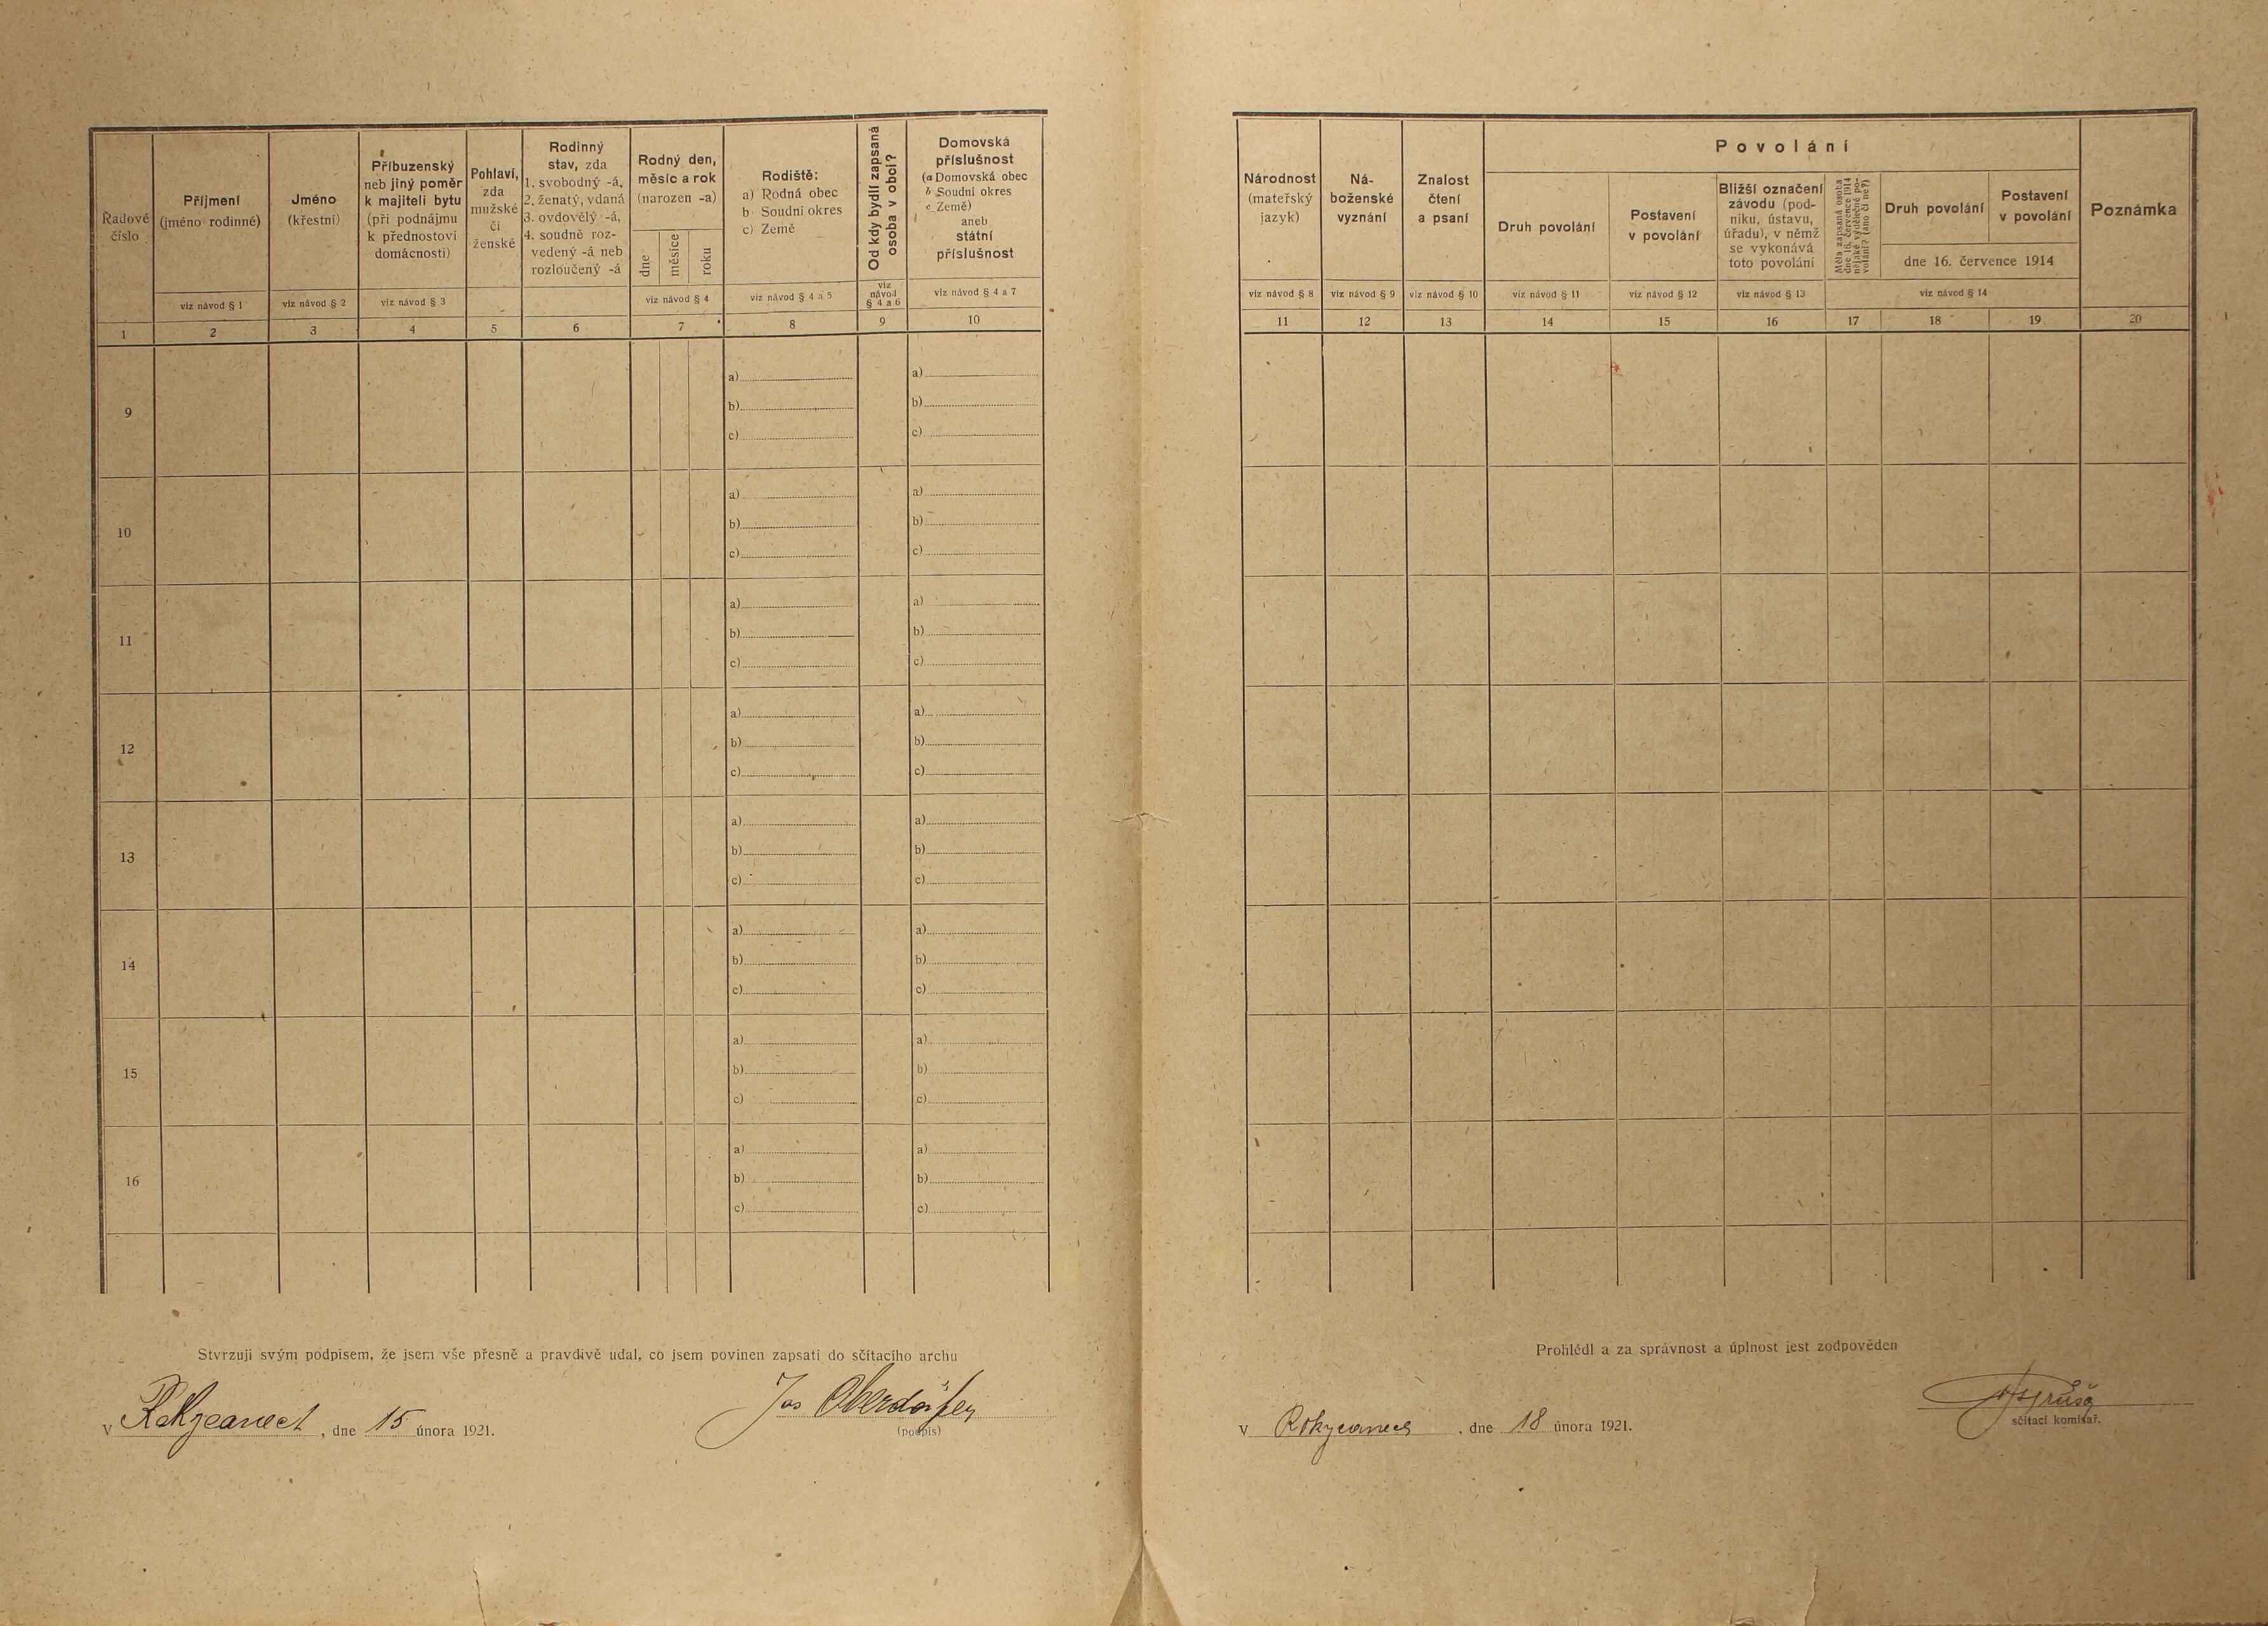 Řadové
číslo
Příjmení
(jméno rodinné)
viz návod § 1
Jméno
(křestní)
viz návod § 2
Příbuzenský
neb jiný poměr
k majiteli bytu
(při podnájmu
k přednostovi
domácnosti)
viz návod § 3
Pohlaví,
zda
mužské
či
ženské
Rodinný
stav, zda
1. svobodný -á,
2. ženatý, vdaná
3. ovdovělý -á,
4. soudně roz-
vedený -á neb
rozloučený -á
Rodný den,
měsíc a rok
(narozen -a)
dne
měsíce
roku
viz návod § 4
Rodiště:
a) Rodná obec
b Soudní okres
c) Země
viz návod § 4 a 5
Od kdy bydlí zapsaná
osoba v obci?
viz
návod
§ 4 a 6
Domovská
příslušnost
(a Domovská obec
b Soudní okres
c Země)
aneb
státní
příslušnost
viz návod § 4 a 7
1 2 3 4 5 6 7 8 9 10
Národnost
(mateřský
jazyk)
viz návod § 8
Ná-
boženské
vyznání
viz návod § 9
Znalost
čtení
a psaní
viz návod § 10
Povolání
Druh povolání
viz návod § 11
Postavení
v povolání
viz návod § 12
Bližší označení
závodu (pod-
niku, ústavu,
úřadu), v němž
se vykonává
toto povolání
viz návod § 13
Měla zapsaná osoba
dne 16. července 1914
nějaké výdělečné po-
volání? (ano či ne?)
Druh povolání
Postavení
v povolání
dne 16. července 1914
viz návod § 14
Poznámka
11 12 13 14 15 16 17 18 19 20
9
a) a)
b) b)
c) c)
10
a) a)
b) b)
c) c)
11
a) a)
b) b)
c) c)
12
a) a)
b) b)
c) c)
13
a) a)
b) b)
c) c)
14
a) a)
b) b)
c) c)
15
a) a)
b) b)
c) c)
16
a) a)
b) b)
c) c)
Stvrzuji svým podpisem, že jsem vše přesně a pravdivě udal, co jsem povinen zapsati do sčítacího archu
v Rokycanech, dne 15 února 1921.
Jos Oberdörfer
(podpis)
Prohlédl a za správnost a úplnost jest zodpověden
v Rokycanech, dne 18 února 1921.
sčítací komisař.